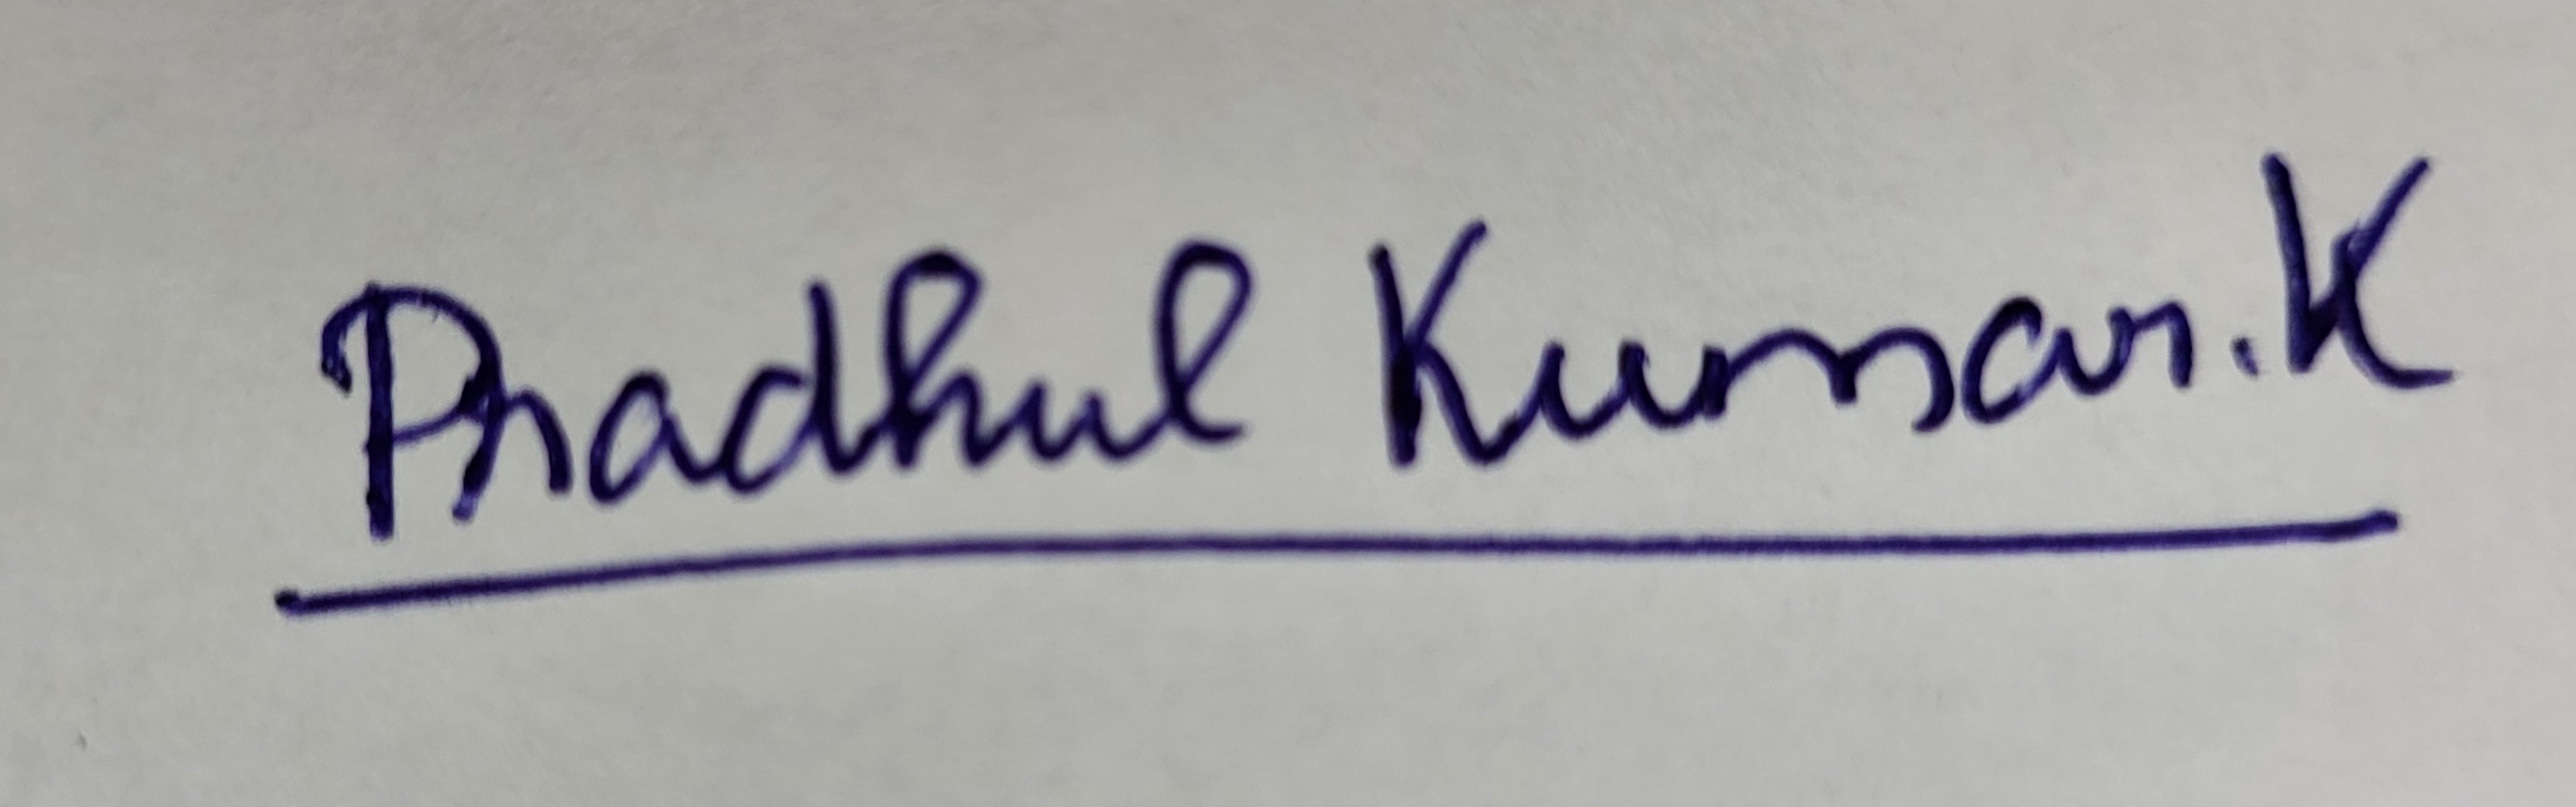 Pradhul Kumar.K